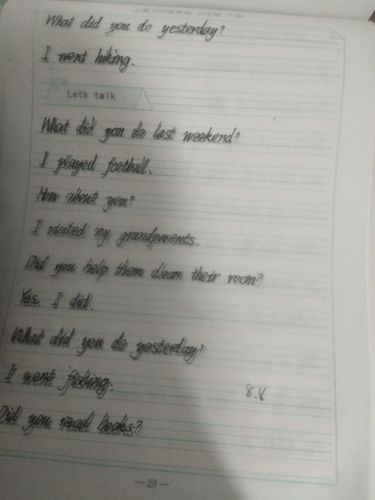 What did you do yesterday?
I went hiking.
Let's talk
What did you do last weekend?
I played football.
How about you?
I visited my grandparents.
Did you help them clean their room?
Yes. I did.
What did you do yesterday?
I went fishing.
8.8
Did you read books?
—28—